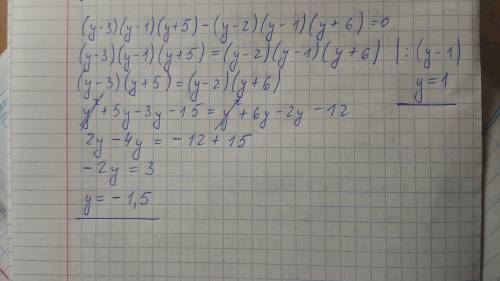 (y-3)(y-1)(y+5)-(y-2)(y-1)(y+6)=0
(y-3)(y-1)(y+5)=(y-2)(y-1)(y+6) |:(y-1)
(y-3)(y+5)=(y-2)(y+6)
y=1
y²+5y-3y-15=y²+6y-2y-12
2y-4y=-12+15
-2y=3
y=-1,5